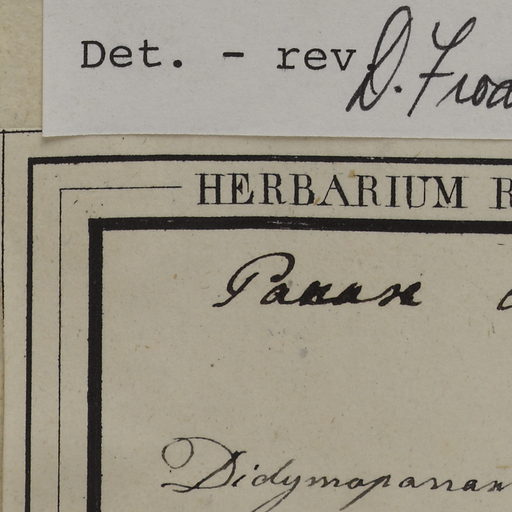 Det. - rev. D. Frod
HERBARIUM R
Panax
Didymopanax